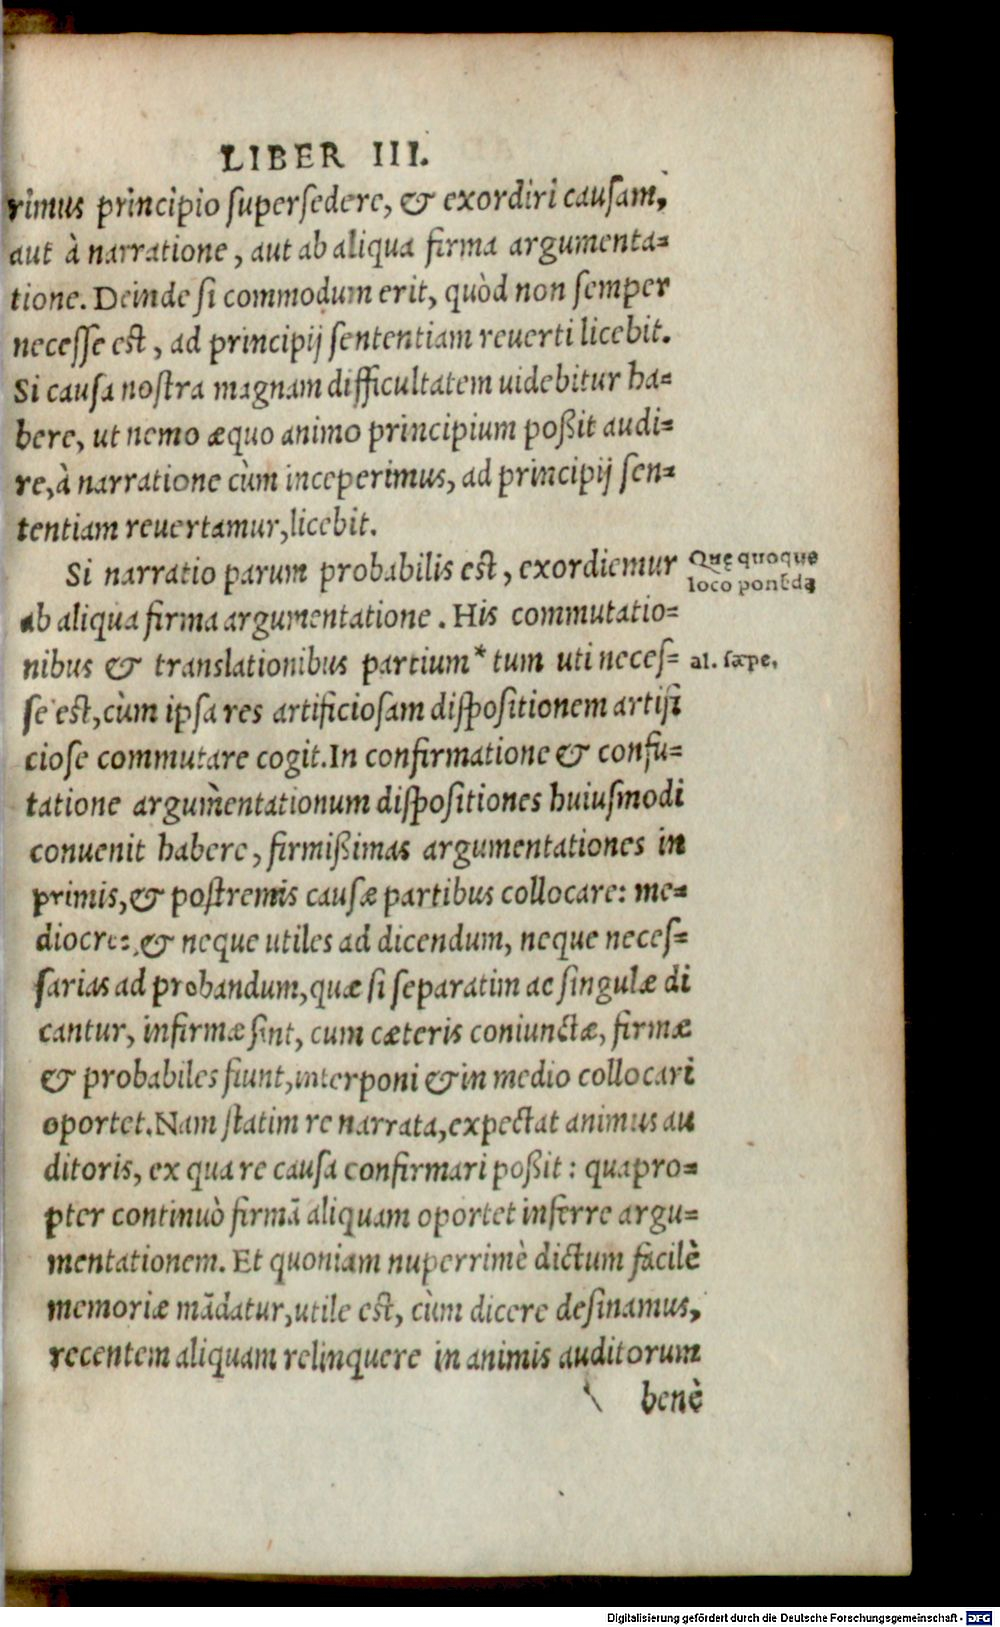 LIBER III.
rimus principio supersedere, & exordiri causam,
aut à narratione, aut ab aliqua firma argumenta=
tione. Deinde si commodum erit, quòd non semper
necesse est, ad principij sententiam reuerti licebit.
Si causa nostra magnam difficultatem uidebitur ha=
bere, ut nemo æquo animo principium poßit audi=
re, à narratione cùm inceperimus, ad principij sen=
tentiam reuertamur, licebit.
Si narratio parum probabilis est, exordiemur
Quę quoque
loco ponēda
ab aliqua firma argumentatione. His commutatio=
nibus & translationibus partium* tum uti neces=
al. sæpe.
se est, cùm ipsa res artificiosam dispositionem artifi
ciose commutare cogit. In confirmatione & confu=
tatione argumentationum dispositiones huiusmodi
conuenit habere, firmißimas argumentationes in
primis, & postremis causæ partibus collocare: me=
diocres & neque utiles ad dicendum, neque neces=
sarias ad probandum, quæ si separatim ac singulæ di
cantur, infirmæ sint, cum cæteris coniunctæ, firmæ
& probabiles fiunt, interponi & in medio collocari
oportet. Nam statim re narrata, expectat animus au
ditoris, ex qua re causa confirmari poßit: quapro=
pter continuò firmā aliquam oportet inferre argu=
mentationem. Et quoniam nuperrimè dictum facilè
memoriæ mādatur, utile est, cùm dicere desinamus,
recentem aliquam relinquere in animis auditorum
benè
Digitalisierung gefördert durch die Deutsche Forschungsgemeinschaft - DFG